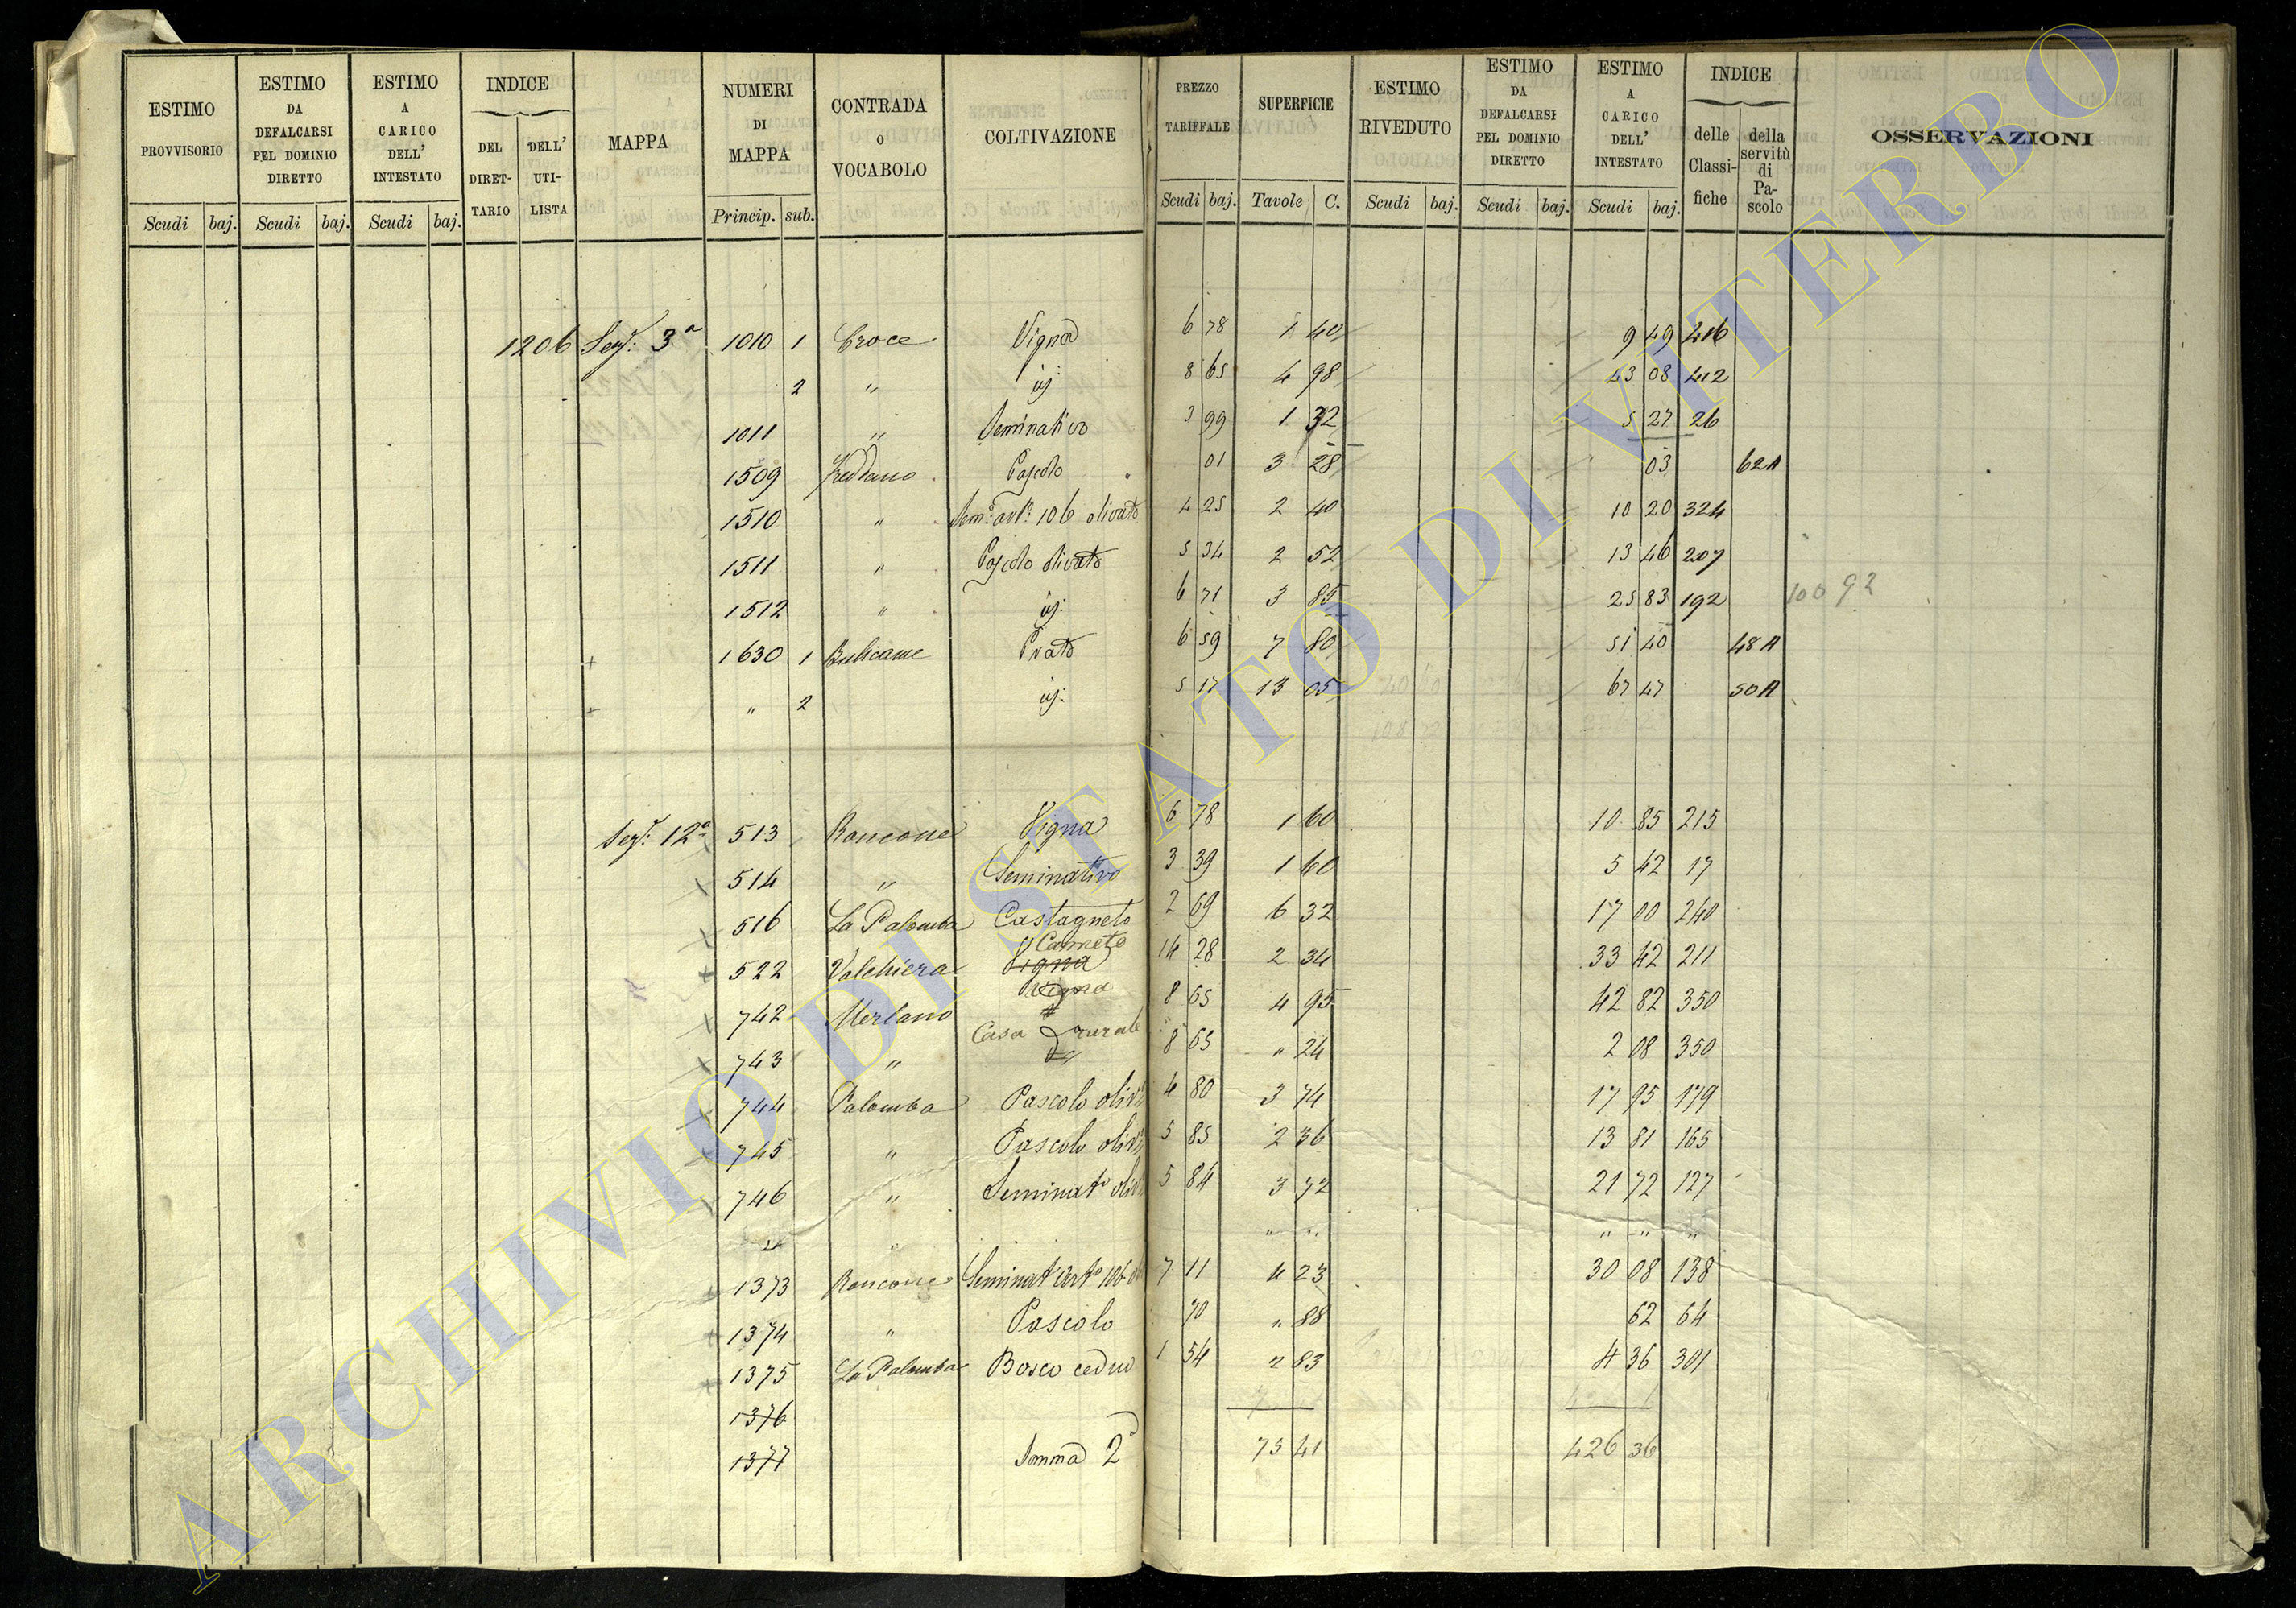 ESTIMO PROVVISORIO Scudi baj. ESTIMO DA DEFALCARSI PEL DOMINIO DIRETTO Scudi baj. ESTIMO A CARICO DELL' INTESTATO Scudi baj. INDICE DEL DIRET-TARIO DELL' UTI-LISTA MAPPA NUMERI DI MAPPA Princip. sub. CONTRADA O VOCABOLO COLTIVAZIONE PREZZO TARIFFALE Scudi baj. SUPERFICIE Tavole C. ESTIMO RIVEDUTO Scudi baj. ESTIMO DA DEFALCARSI PEL DOMINIO DIRETTO Scudi baj. ESTIMO A CARICO DELL' INTESTATO Scudi baj. INDICE delle Classi-fiche della servitù di Pa-scolo OSSERVAZIONI
1206 Sez: 3a 1010 1 Croce Vigna 6 78 1 40 9 49 416
2 " id: 8 65 4 98 43 08 412
1011 " Seminativo 3 99 1 32 5 27 26
1509 Pascolo 01 3 28 03 62A
1510 " olivato 4 25 2 40 10 20 324
1511 " Pascolo olivato 5 34 2 52 13 46 207
1512 " id: 6 71 3 85 25 83 192 100 92
1630 1 Bulicame Prato 6 59 7 80 51 40 48A
" 2 id: 5 17 13 05 67 47 50A
Sez: 12a 513 Roncone Vigna 6 78 1 60 10 85 215
514 " Seminativo 3 39 1 60 5 42 17
516 La Palomba Castagneto 2 69 6 32 17 00 240
Canneto
522 Valchiera Vigna 14 28 2 34 33 42 211
Vigna
742 Merlano 8 65 4 95 42 82 350
Casa rurale
743 " 8 65 " 24 2 08 350
744 Palomba Pascolo oliv 4 80 3 74 17 95 179
745 " Pascolo oliv 5 85 2 36 13 81 165
746 " Seminato oliv 5 84 3 72 21 72 127
" " " " " " "
1373 Roncone Seminat Arto 106 7 11 4 23 30 08 138
1374 " Pascolo 70 " 88 62 64
1375 La Palomba Bosco ceduo 1 54 2 83 4 36 301
1376
1377 Somma 2a 75 41 426 36
ARCHIVIO DI STATO DI VITERBO